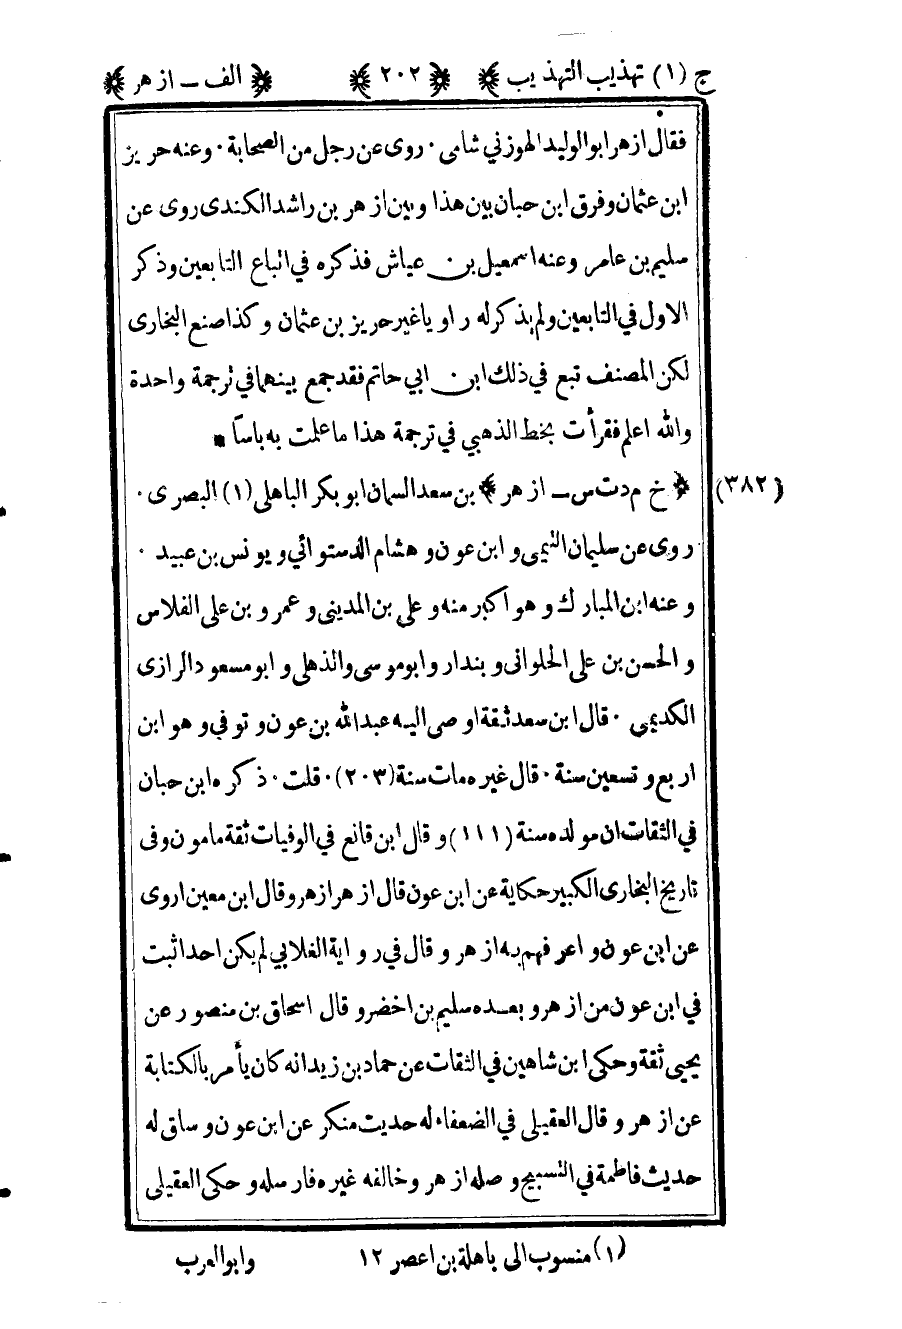 ج (١) تهذيب التهذيب ﴿ ٢٠٢ ﴾ ﴿ الف ــ ازهر ﴾
فقال ازهر ابو الوليد الهوزني شامى ٠ روى عن رجل من الصحابة ٠ وعنه حريز
ابن عثمان وفرق ابن حبان بين هذا وبين ازهر بن راشد الكندى روى عن
سليم بن عامر وعنه اسمعيل بن عياش فذكره في اتباع التابعين وذكر
الاول في التابعين ولم يذكر له راويا غير حريز بن عثمان وكذا صنع البخارى
لكن المصنف تبع في ذلك ابن ابي حاتم فقد جمع بينهما في ترجمة واحدة
والله اعلم فقرأت بخط الذهبي في ترجمة هذا ما علمت به باساً ٠
(٣٨٢) ﴿ خ م د ت س ــ ازهر ﴾ بن سعد السمان ابو بكر الباهلى (١) البصرى ٠
روى عن سليمان التيمى و ابن عون و هشام الدستوائي و يونس بن عبيد ٠
و عنه ابن المبارك و هو اكبر منه و علي بن المديني و عمرو بن على الفلاس
و الحسن بن على الحلوانى و بندار و ابو موسى والذهلى و ابو مسعود الرازى
الكديمى ٠ قال ابن سعد ثقة اوصى اليه عبدالله بن عون و توفي و هو ابن
اربع و تسعين سنة ٠ قال غيره مات سنة (٢٠٣) ٠ قلت ٠ ذكره ابن حبان
في الثقات ان مولده سنة (١١١) و قال ابن قانع في الوفيات ثقة مامون وفى
تاريخ البخارى الكبير حكاية عن ابن عون قال ازهر ازهر وقال ابن معين اروى
عن ابن عون و اعرفهم به ازهر و قال في رواية الغلابي لم يكن احد اثبت
في ابن عون من ازهر و بعده سليم بن اخضر و قال اسحاق بن منصور عن
يحيى ثقة و حكى ابن شاهين في الثقات عن حماد بن زيد انه كان يأمر بالكتابة
عن ازهر و قال العقيلى في الضعفاء له حديث منكر عن ابن عون و ساق له
حديث فاطمة في التسبيح و صله ازهر و خالفه غيره فارسله و حكى العقيلى
(١) منسوب الى باهلة بن اعصر ١٢ وابو العرب